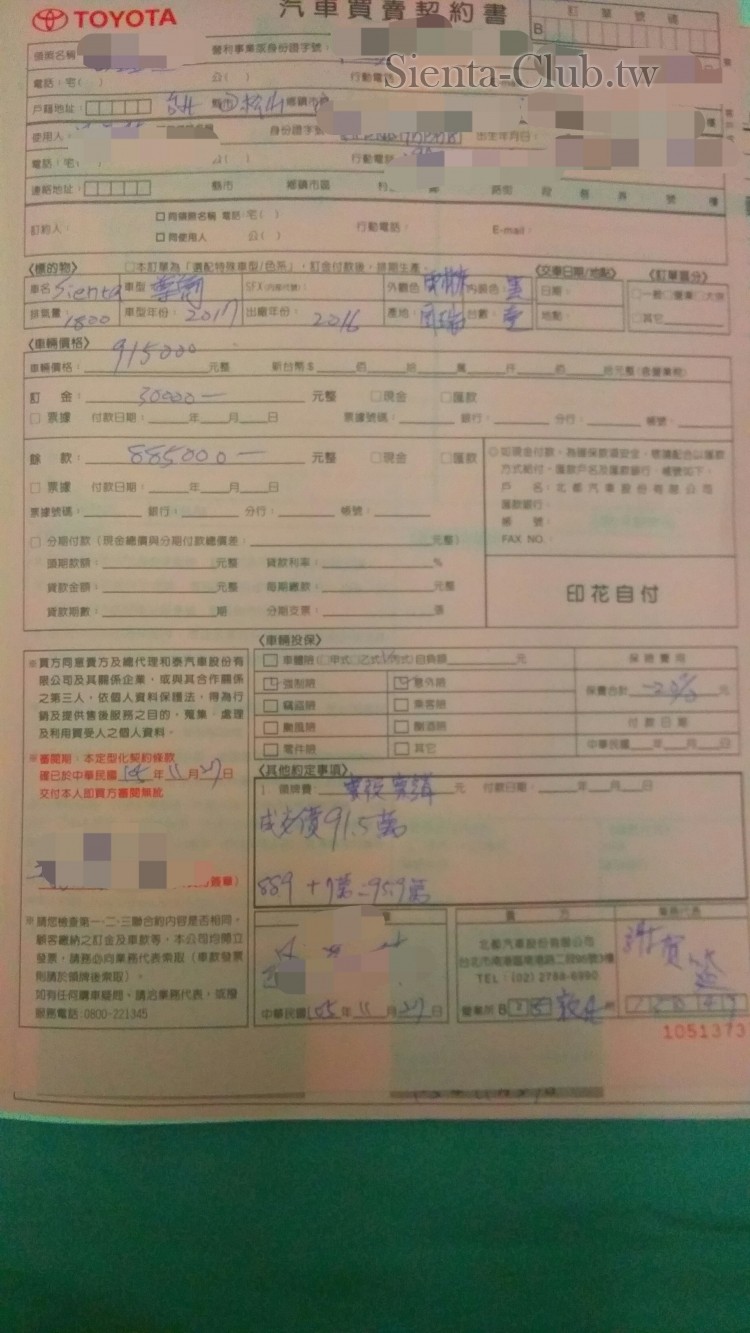 TOYOTA 汽車買賣契約書 訂單號碼
B
Sienta-Club.tw
領照名稱 營利事業或身份證字號：
電話：宅( 公( ) 行動電話
戶籍地址： 松山 鄉鎮市區 樓
使用人： 身份證字號 出生年月日：
電話：宅 行動電話
連絡地址： 縣市 鄉鎮市區 村 鄰 路街 段 巷 弄 號 樓
訂約人： □同領照名稱 電話：宅( ) 行動電話： E-mail：
□同使用人 公( )
〈標的物〉 □本訂單為「選配特殊車型/色系」，訂金付款後，排期生產。 〈交車日期/地點〉 〈訂單區分〉
車名 Sienta 車型 SFX 外觀色 內裝色：黑 日期： □一般□營業□大宗
排氣量：1800 車型年份：2017 出廠年份：2016 產地：國瑞 台數：壹 地點： □其它
〈車輛價格〉
車輛價格： 915000 元整 新台幣$ 佰 拾 萬 仟 佰 拾元整(含營業稅)
訂 金： 30000— 元整 □現金 □匯款
□ 票據 付款日期： 年 月 日 票據號碼： 銀行： 分行： 帳號：
餘 款： 885000— 元整 □現金 □匯款
□ 票據 付款日期： 年 月 日
票據號碼： 銀行： 分行： 帳號：
◎如現金付款，為確保款項安全，懇請配合以匯款
方式給付，匯款戶名及匯款銀行、帳號如下。
戶 名：北都汽車股份有限公司
匯款銀行：
帳 號：
FAX NO.
□ 分期付款（現金總價與分期付款總價差： 元整）
頭期款額： 元整 貸款利率： %
貸款金額： 元整 每期繳款： 元整
貸款期數： 期 分期支票： 張
印花自付
〈車輛投保〉
□ 車體險(□甲式□乙式□丙式)自負額 元 保險費用
□ 強制險 □ 意外險 保費合計 元
□ 竊盜險 □ 乘客險
□ 颱風險 □ 酗酒險 付款日期
□ 零件險 □ 其它 中華民國 年 月 日
※買方同意貴方及總代理和泰汽車股份有
限公司及其關係企業，或與其合作關係
之第三人，依個人資料保護法，得為行
銷及提供售後服務之目的，蒐集、處理
及利用買受人之個人資料。
※審閱期：本定型化契約條款
確已於中華民國 105 年 11 月 27 日
交付本人即買方審閱無訛
簽章)
〈其他約定事項〉
1 領牌費 元 付款日期： 年 月 日
成交價91.5萬
88.9 + 7萬=95.9萬
※請您檢查第一、二、三聯合約內容是否相同。
顧客繳納之訂金及車款等，本公司均開立
發票，請務必向業務代表索取（車款發票
則請於領牌後索取）。
如有任何購車疑問，請洽業務代表，或撥
服務電話：0800-221345
中華民國 105 年 11 月 27 日
賣 方
北都汽車股份有限公司
台北市南港區南港路二段95號3樓
TEL：(02) 2788-6990
營業所 B
業務代表
1051373